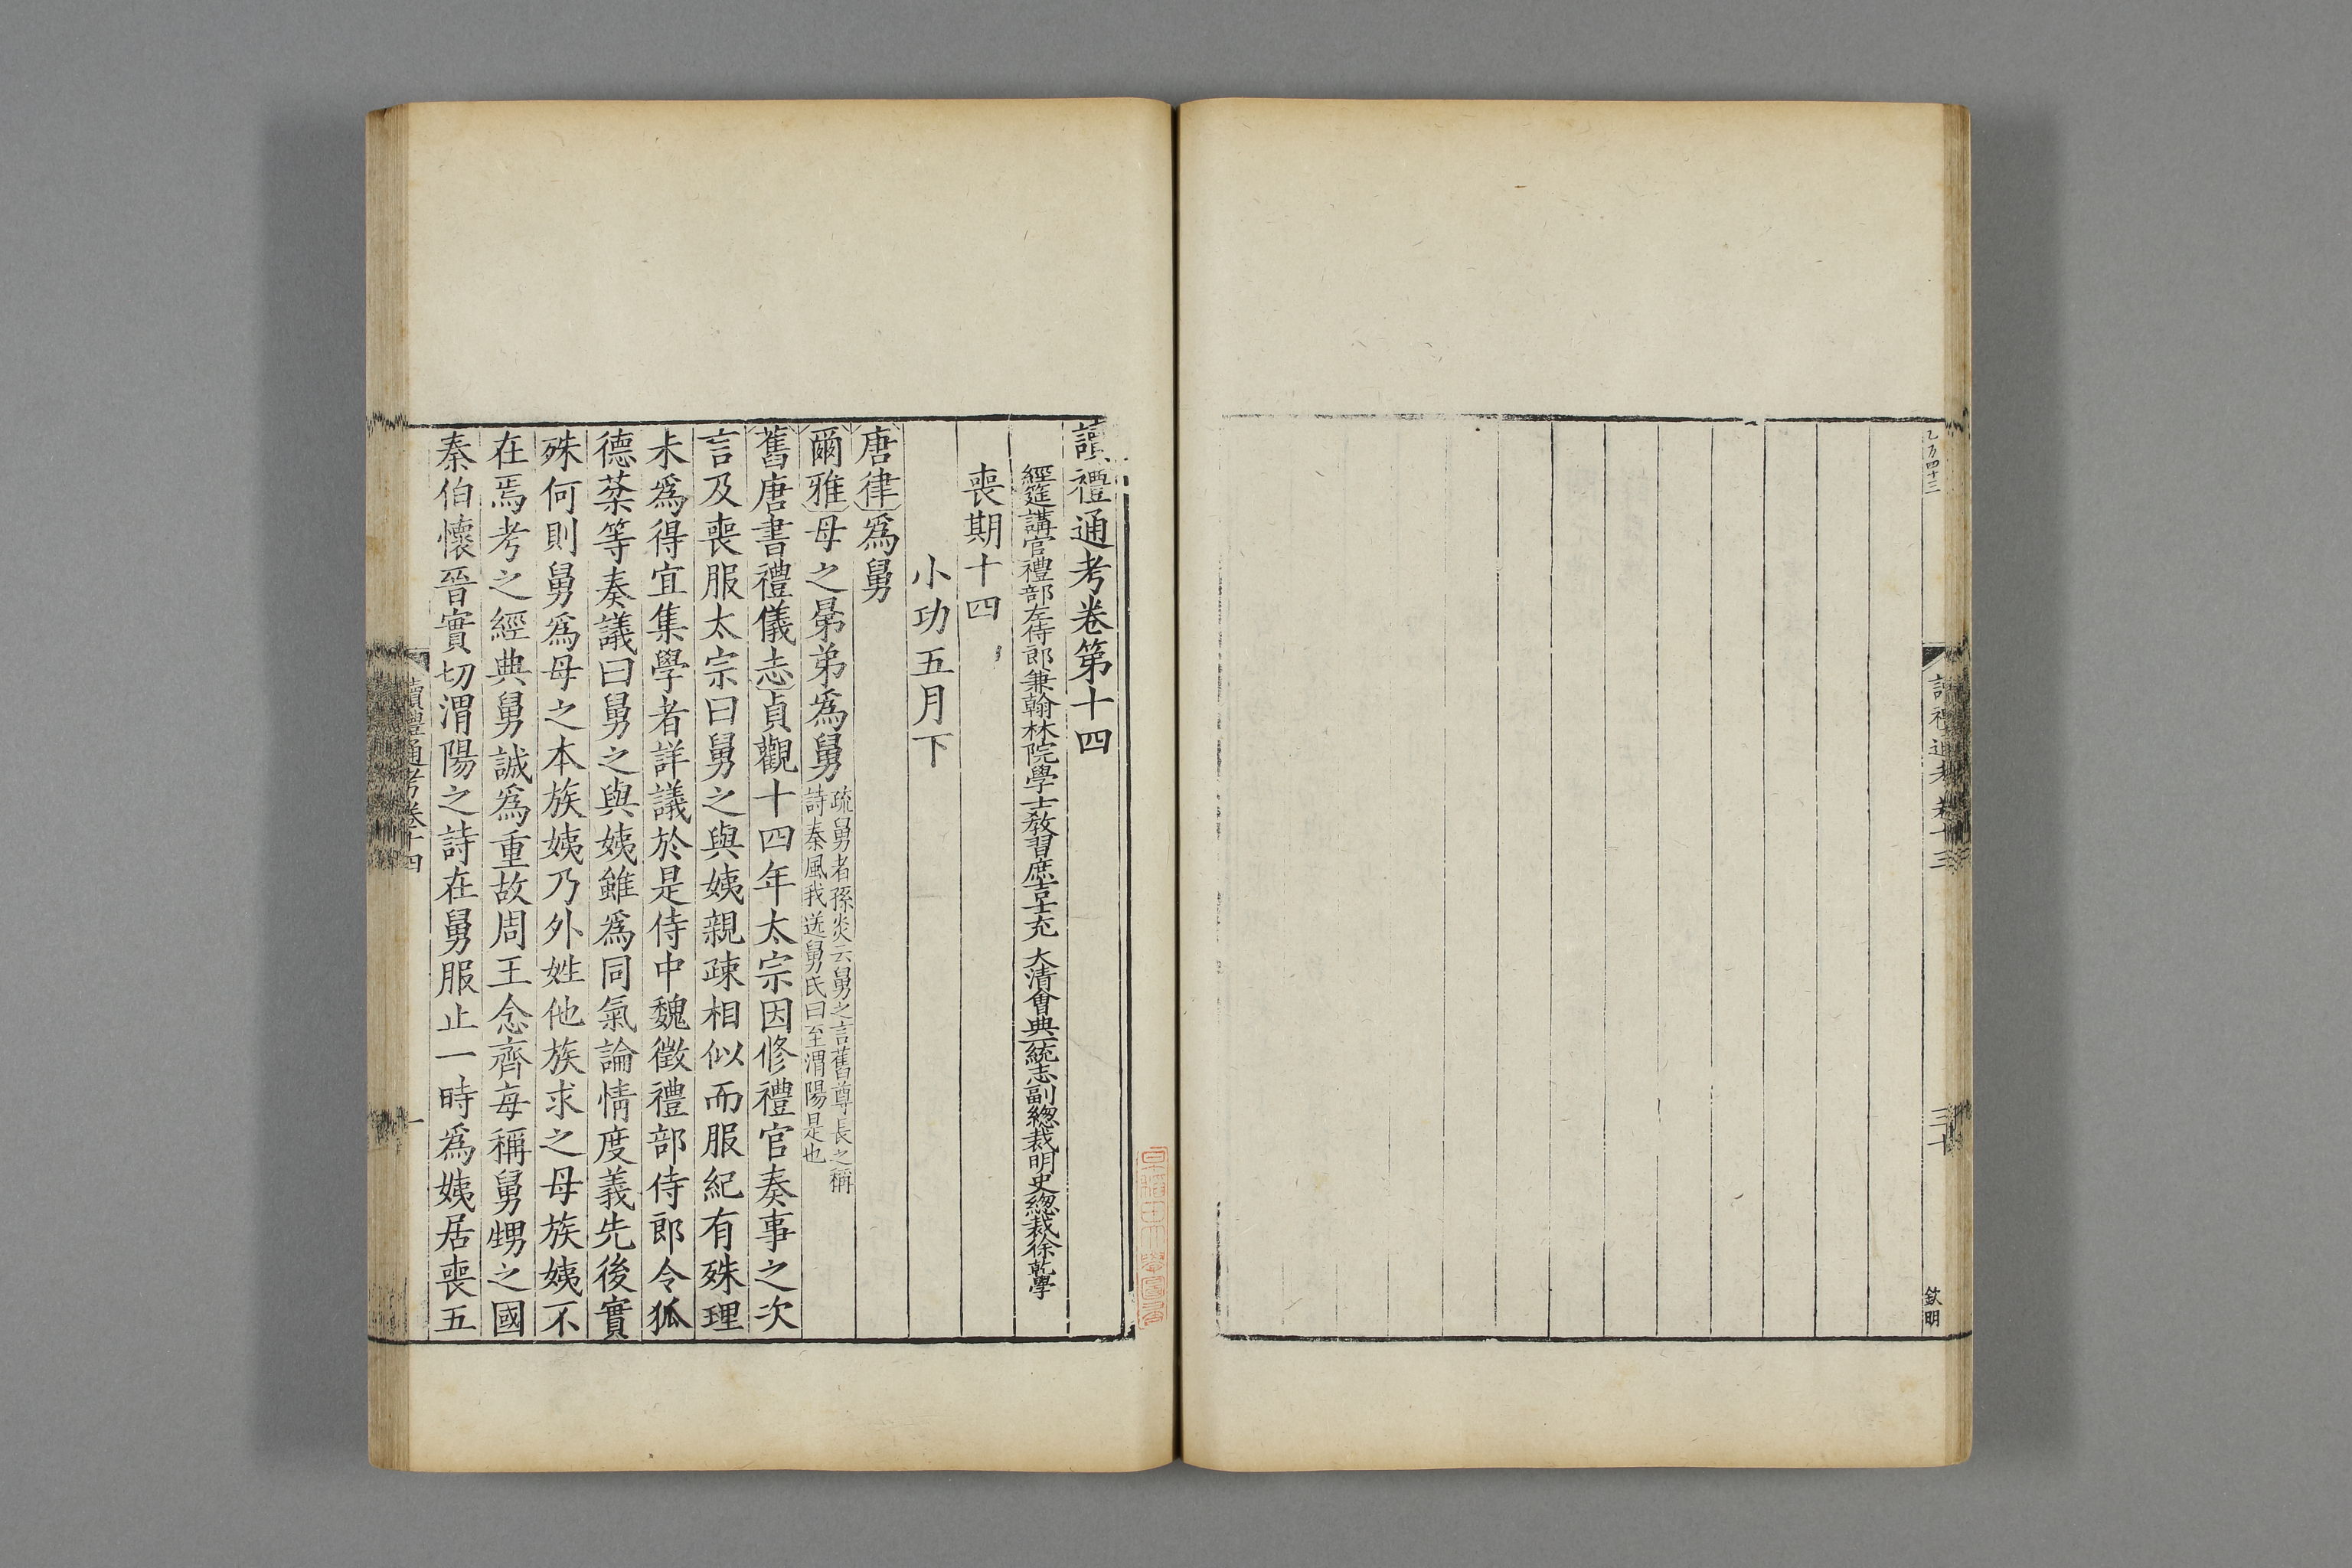 乙万四十三
讀禮通考卷十三
三十
欽明
讀禮通考卷第十四
經筵講官禮部左侍郎兼翰林院學士教習庶吉士充 大清會典一統志副總裁明史總裁徐乾學
喪期十四
小功五月下
唐律爲舅
爾雅母之晜弟爲舅
疏舅者孫炎云舅之言舊尊長之稱
詩秦風我送舅氏曰至渭陽是也
舊唐書禮儀志貞觀十四年太宗因修禮官奏事之次
言及喪服太宗曰舅之與姨親疎相似而服紀有殊理
未爲得宜集學者詳議於是侍中魏徵禮部侍郎令狐
德棻等奏議曰舅之與姨雖爲同氣論情度義先後實
殊何則舅爲母之本族姨乃外姓他族求之母族姨不
在焉考之經典舅誠爲重故周王念齊每稱舅甥之國
秦伯懷晉實切渭陽之詩在舅服止一時爲姨居喪五
讀禮通考卷十四
一
早稻田大學圖書